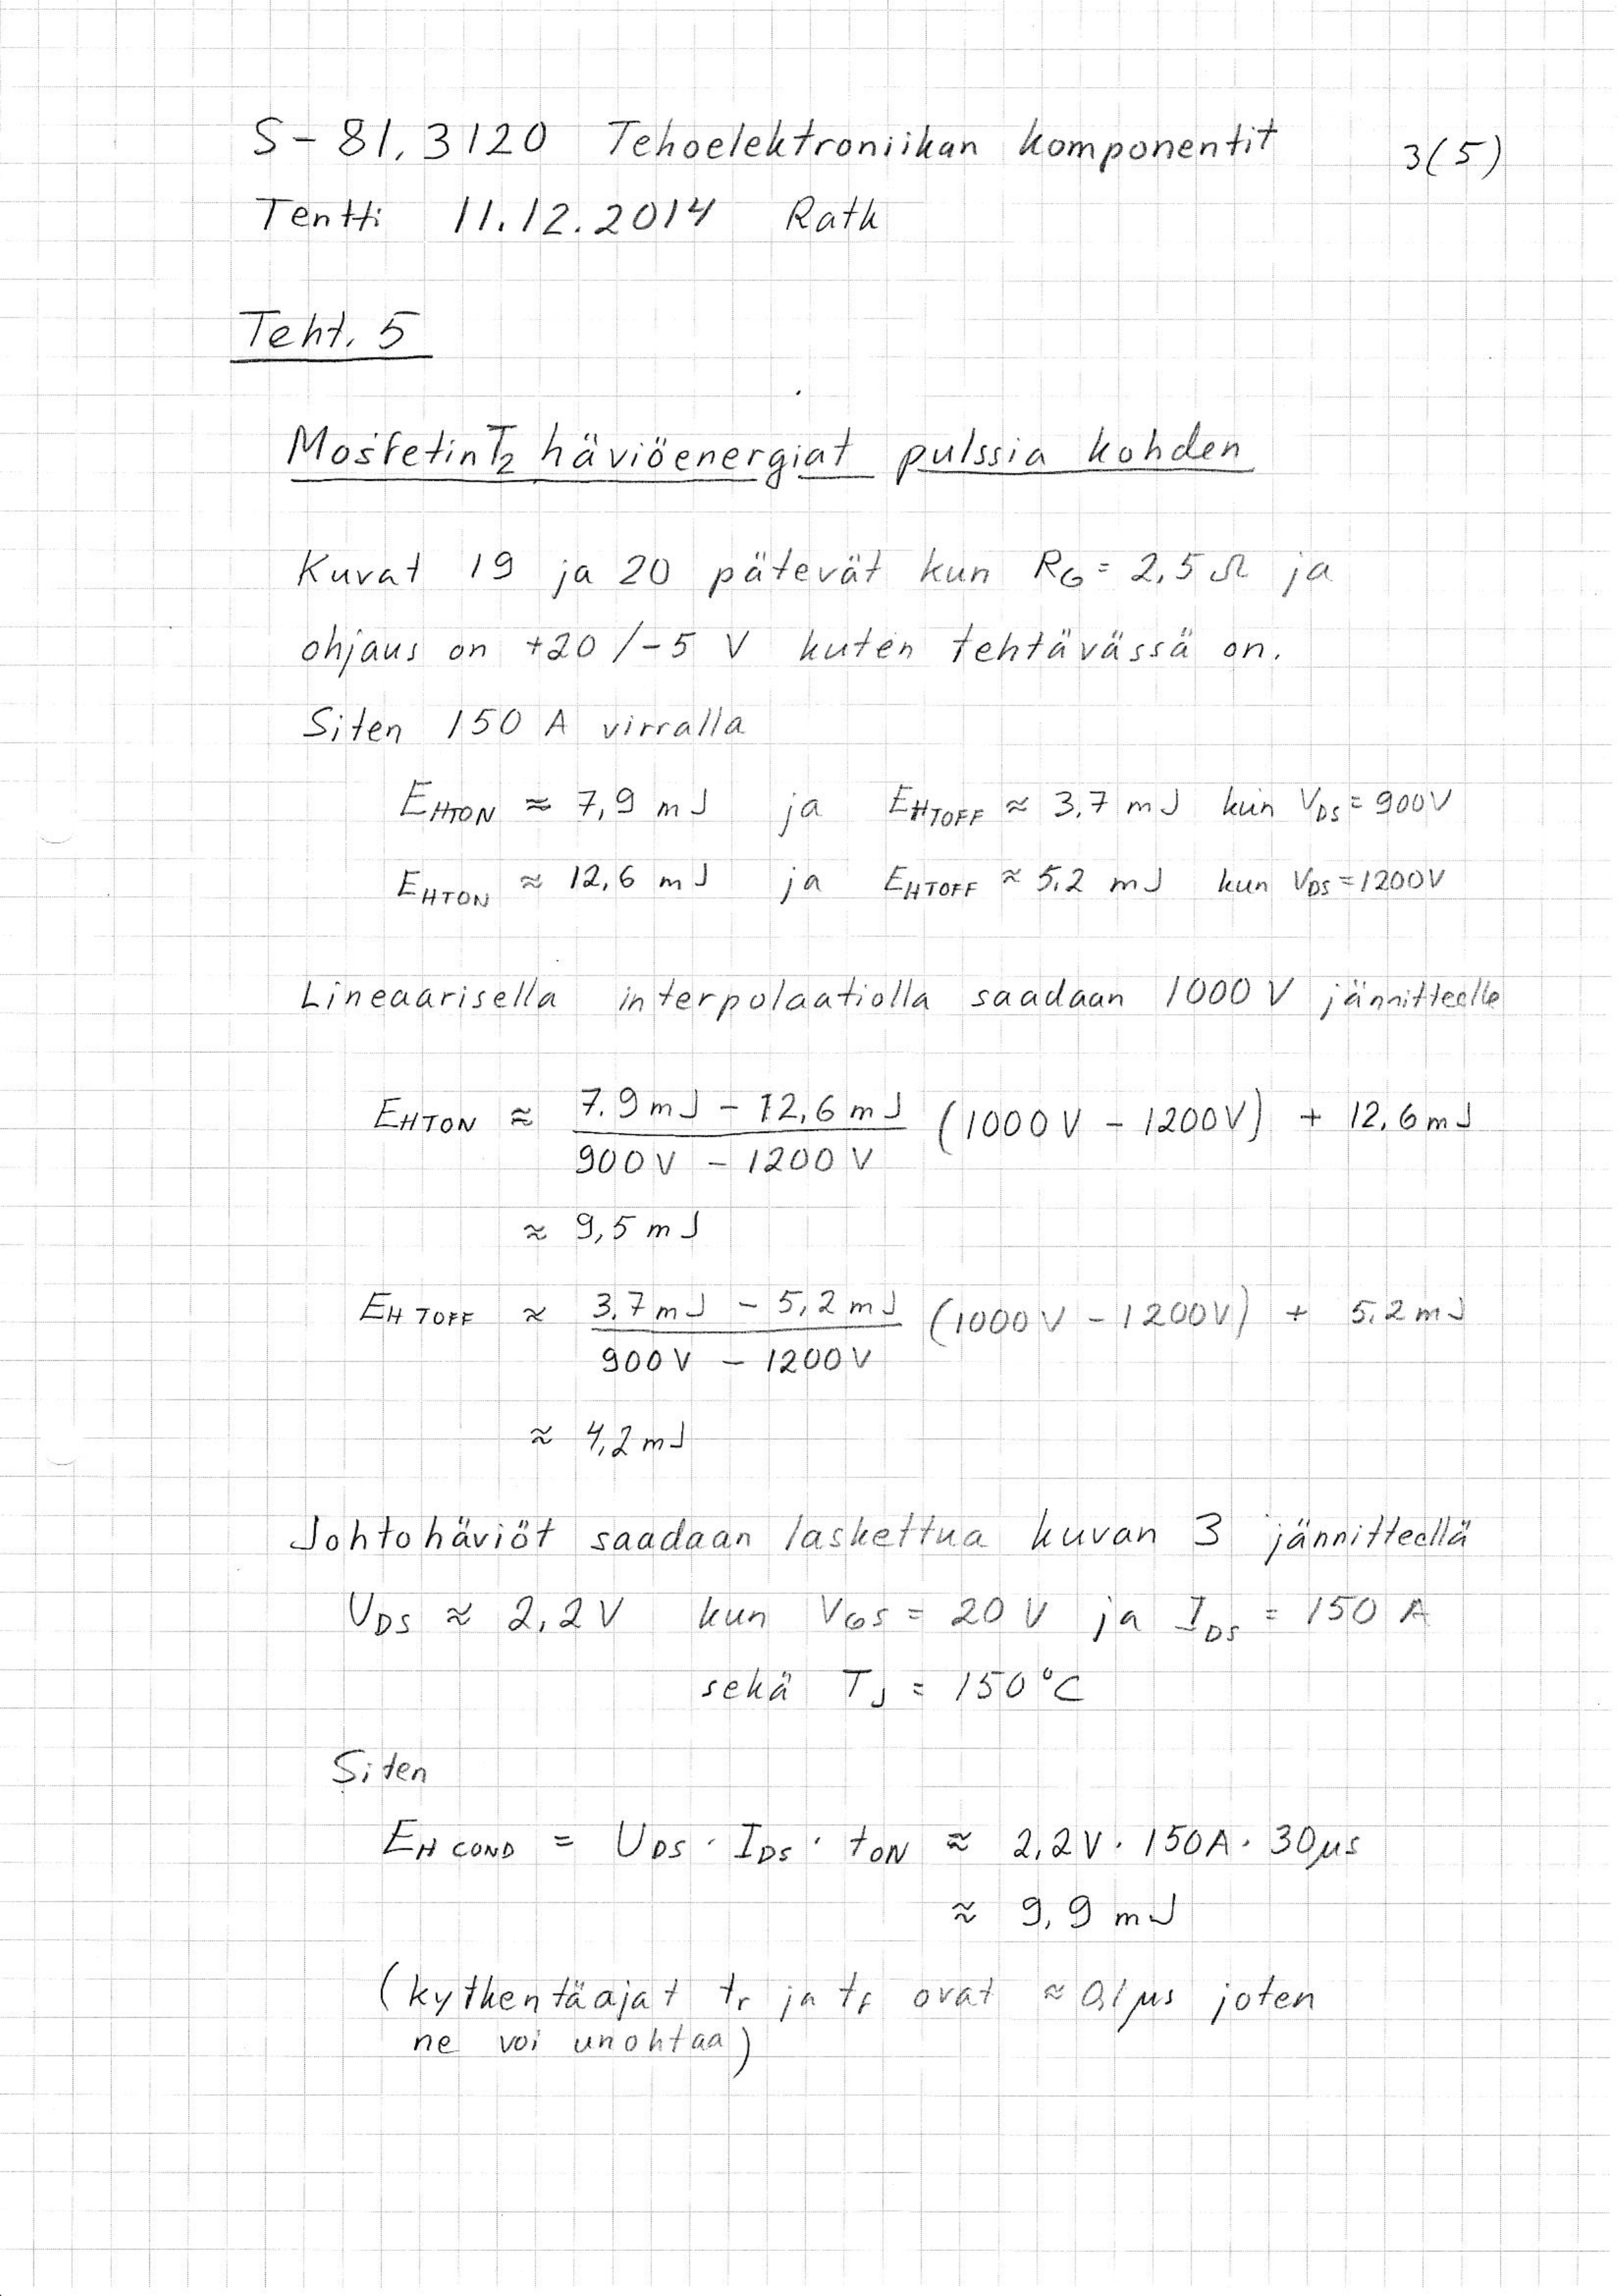 S-81.3120 Tehoelektroniikan komponentit 3(5)
Tentti 11.12.2014 Ratk
Teht. 5
Mosfetin T2 häviöenergiat pulssia kohden
Kuvat 19 ja 20 pätevät kun RG = 2,5 Ω ja
ohjaus on +20/-5 V kuten tehtävässä on.
Siten 150 A virralla
EHTON ≈ 7,9 mJ ja EHTOFF ≈ 3,7 mJ kun VDS = 900V
EHTON ≈ 12,6 mJ ja EHTOFF ≈ 5,2 mJ kun VDS = 1200V
Lineaarisella interpolaatiolla saadaan 1000 V jännitteelle
EHTON ≈ (7.9 mJ - 12,6 mJ)/(900V - 1200V) (1000V - 1200V) + 12,6 mJ
≈ 9,5 mJ
EHTOFF ≈ (3,7 mJ - 5,2 mJ)/(900V - 1200V) (1000V - 1200V) + 5,2 mJ
≈ 4,2 mJ
Johtohäviöt saadaan laskettua kuvan 3 jännitteellä
UDS ≈ 2,2 V kun VGS = 20 V ja IDS = 150 A
sekä TJ = 150°C
Siten
EHCOND = UDS · IDS · tON ≈ 2,2V · 150A · 30µs
≈ 9,9 mJ
(kytkentäajat tr ja tf ovat ≈ 0,1 µs joten
ne voi unohtaa)